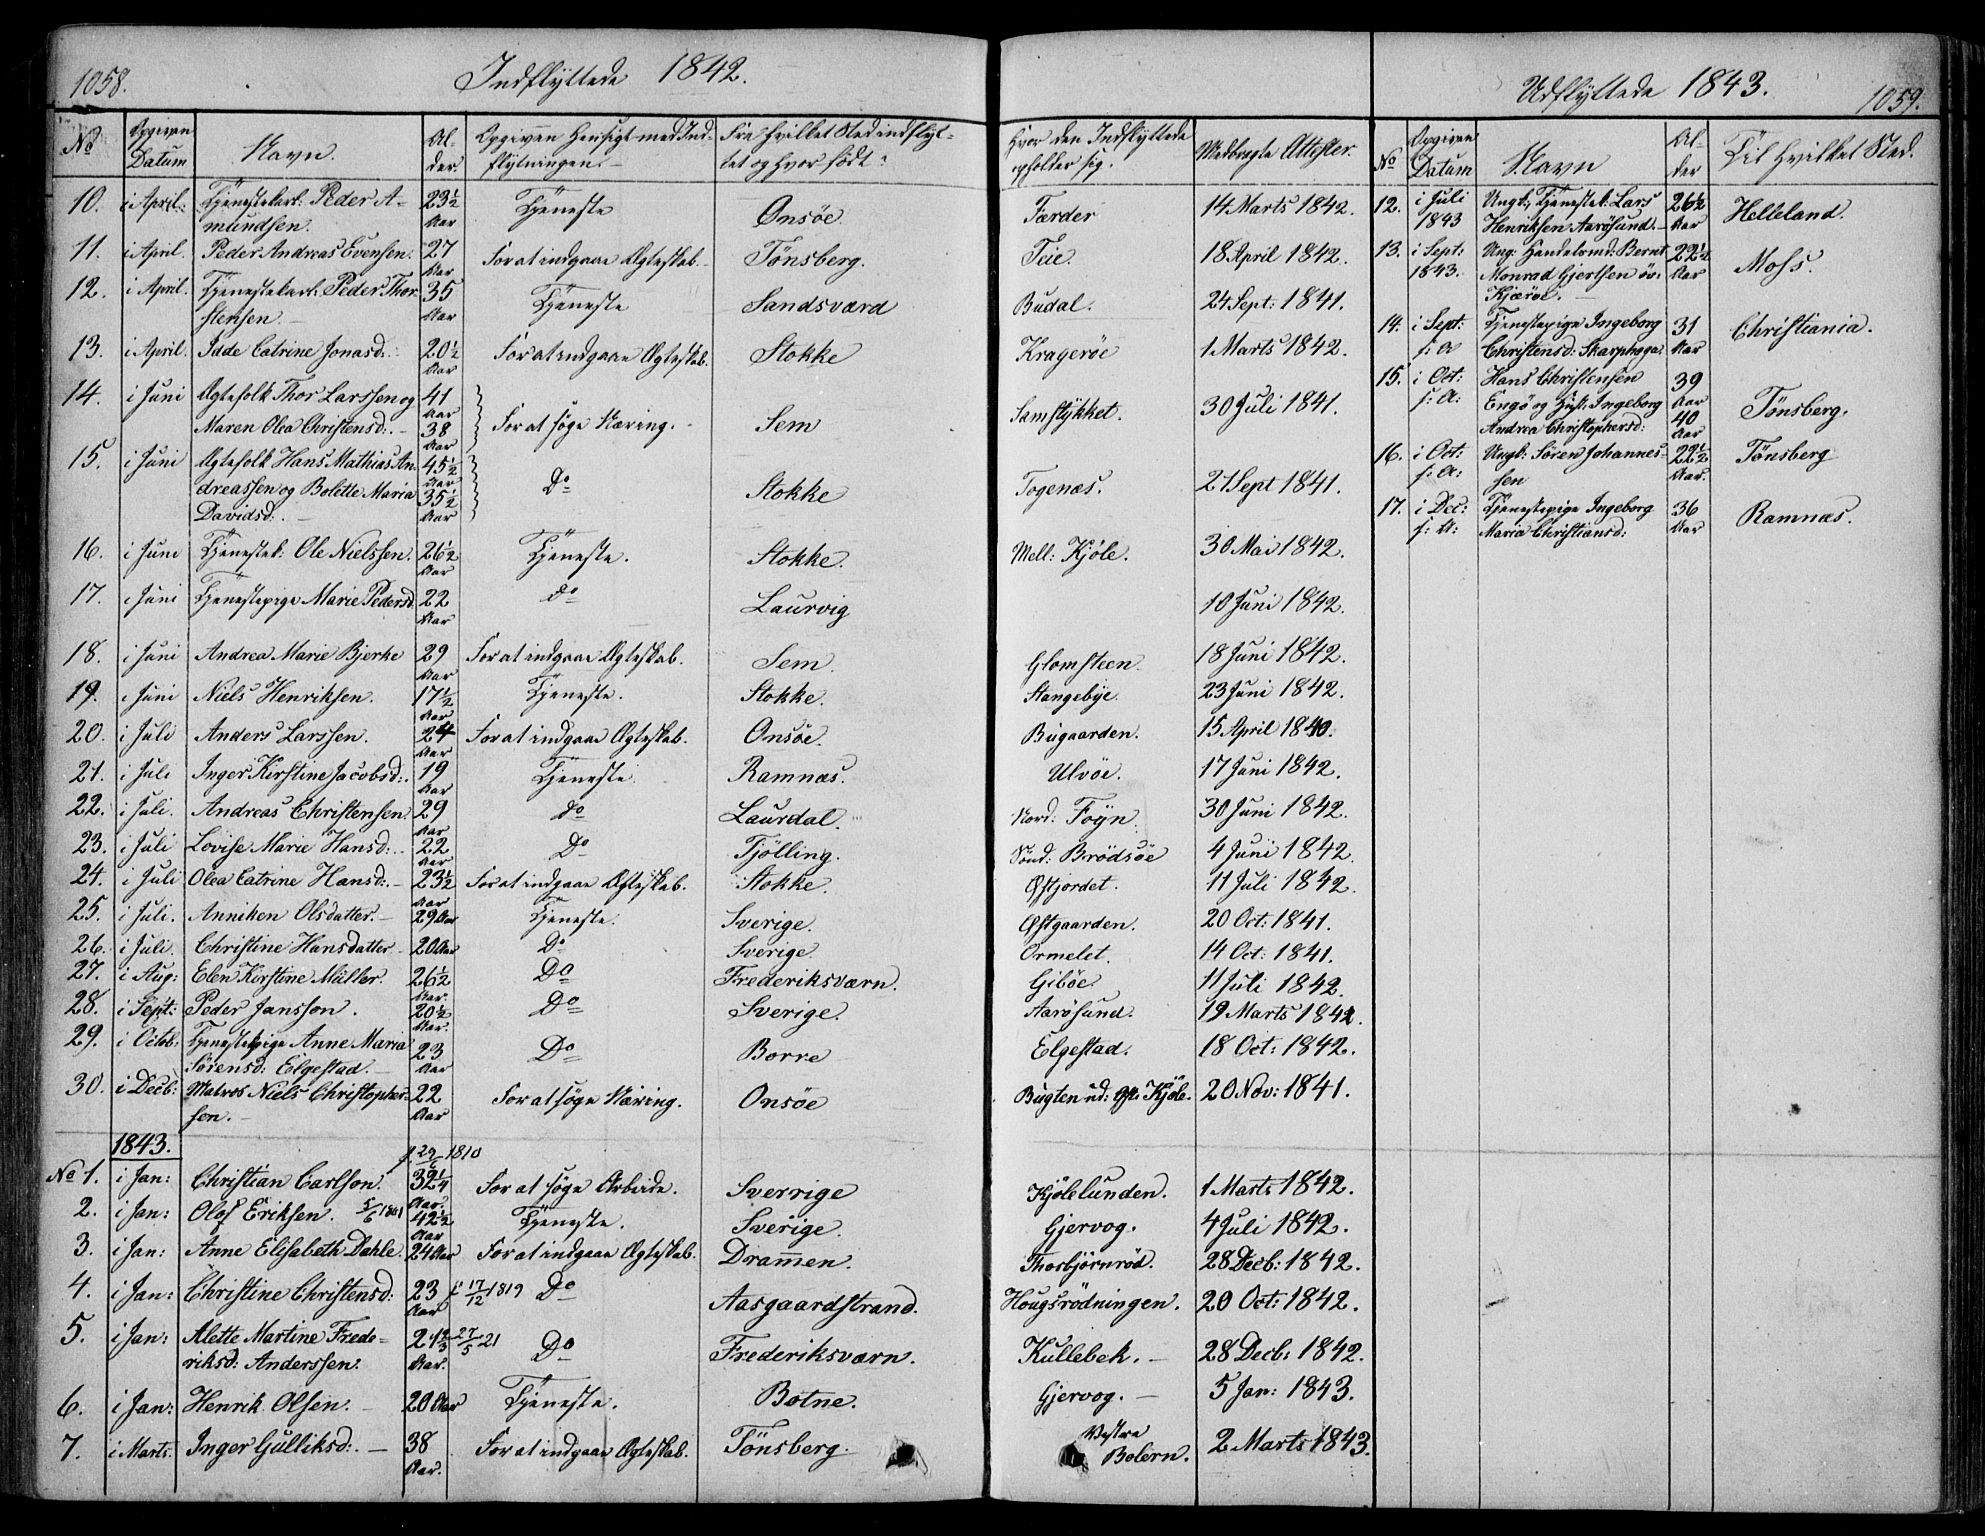 1058.
Indflyttede 1842.
No
Opgiven Datum
Navn.
Alder.
Opgiven Hensigt med Indflytningen.
Fra hvilket Sted indflyttet og hvor født?
Hvor den Indflyttede opholder sig.
Medbragte Attester.
10. i April. Tjenestekarl: Peder Amundsen. 23½ Aar Tjeneste Onsøe Færder 14 Marts 1842.
11. i April. Peder Andreas Evensen. 27 Aar For at indgaae Ægteskab. Tønsberg. Teie. 18 April 1842.
12. i April. Tjenestekarl: Peder Thorstensen. 35 Aar Tjeneste Sandsværd Budal. 24 Sept: 1841.
13. i April. Idde Catrine Jonasd: 20½ Aar For at indgaae Ægteskab. Stokke Kragerøe 1 Marts 1842.
14. i Juni Ægtefolk Thor Larssen og Maren Olea Christensd: 41 Aar 38 Aar For at søge Næring. Sem Samstykket. 30 Juli 1841.
15. i Juni Ægtefolk Hans Mathias Andreassen og Bolette Maria Davidsd: 45½ Aar 35½ Aar Do Stokke Togenæs. 21 Sept 1841.
16. i Juni Tjenestek: Ole Nielssen. 26½ Aar Tjeneste. Stokke. Mell: Kjøle. 30 Mai 1842.
17. i Juni Tjenestepige Marie Pedersd. 22 Aar Do Laurvig 10 Juni 1842.
18. i Juni Andrea Marie Bjerke 29 Aar For at indgaae Ægteskab. Sem. Glomsteen. 18 Juni 1842.
19. i Juni Niels Henriksen. 17½ Aar Tjeneste. Stokke. Stangebye. 23 Juni 1842.
20. i Juli Anders Larssen. 24 Aar For at indgaae Ægteskab. Onsøe. Bugaarden. 15 April 1840.
21. i Juli Inger Kirstine Jacobsd: 19 Aar Tjeneste Ramnæs. Ulvøe. 17 Juni 1842.
22. i Juli. Andreas Christensen. 29 Aar Do Laurdal. Nord: Føyn 30 Juni 1842.
23. i Juli Lovise Marie Hansd: 22 Aar Do Tjølling. Sønd: Brødsøe 4 Juni 1842.
24. i Juli Olea Catrine Hansd: 23½ Aar For at indgaae Ægteskab. Stokke. Østjordet. 11 Juli 1842.
25. i Juli. Anniken Olsdatter. 29 Aar Tjeneste. Sverige. Østgaarden. 20 Oct: 1841.
26. i Juli. Christine Hansdatter 20 Aar Do Sverige. Ormelet. 14 Oct: 1841.
27. i Aug: Elen Kirstine Müller. 26½ Aar. Do Frederiksværn. Gibøe 11 Juli 1842.
28. i Sept: Peder Jansson. 20½ Aar. Do Sverige. Aarøsund. 19 Marts 1842.
29. i Octob: Tjenestepige Anne Maria Sørensd: Elgestad. 23 Aar Do Borre Elgestad. 18 Oct: 1842.
30. i Decb: Matros Niels Christophersen. 22 Aar For at søge Næring. Onsøe Bugten ud: Øst: Kjøle. 20 Nov: 1841.
1843.
No 1. i Jan: Christian Carlson. f 29/6 1810 32¼ Aar. For at søge Arbeide. Sverrige Kjølelunden. 1 Marts 1842.
2. i Jan: Olof Eriksen. 5/6 1801 42½ Aar Tjeneste. Sverige. Gjervog. 4 Juli 1842.
3. i Jan: Anne Elisabeth Dahle. 24 Aar For at indgaae Ægteskab. Dramen. Thorbjørnrød. 28 Decb: 1842.
4. i Jan: Christine Christensd: 23 Aar f 17/12 1819 Do Aasgaardstrand. Hougsrødningen. 20 Oct: 1842.
5. i Jan: Alette Martine Frederiksd: Anderssen. 21⅔ Aar. 27/5 21 Do Frederiksværn. Kullebek. 28 Decb: 1842.
6. i Jan: Henrik Olsen. 20 Aar Tjeneste. Botne. Gjervog. 5 Jan: 1843.
7. i Marts. Inger Gulliksd: 38 Aar. For at indgaae Ægteskab. Tönsberg. Vestre Bolern. 2 Marts 1843.
Udflyttede 1843.
1059.
No
Opgiven Datum
Navn
Alder
Til hvilket Sted.
12. i Juli 1843 Ungk: Tjenestek: Lars Henriksen Aarøsund. 26½ Aar Helleland.
13. i Sept: 1843. Ung: Handelsmd: Bernt Monrad Gjertsen ov: Kjærøe. 22½ Aar Moss.
14. i Sept: s: A Tjenestepige Ingeborg Christensd: 31 Aar Christiania.
15. i Oct: s: A: Hans Christensen Engø og Hust: Ingeborg Andrea Christophersd: 39 Aar 40 Aar Tønsberg.
16. i Oct: s: A: Ungk: Søren Johannessen 22½ Aar. Tønsberg
17. i Dec: s: A: Tjenestepige Ingeborg Maria Christiansd: 36 Aar Ramnæs.